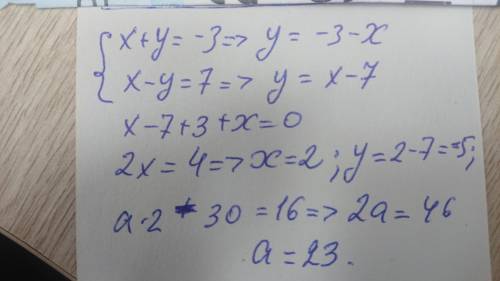 { x+y= -3 => y = -3-x
x-y=7 => y = x-7
x-7+3+x=0
2x = 4 => x=2 ; y=2-7=-5;
a·2 - 30 = 16 => 2a = 46
a = 23.